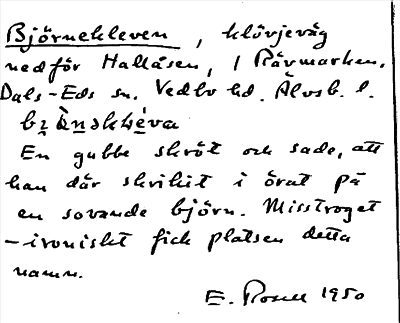 Björnekleven, klövjeväg
nedför Hallåsen, i Rävmarken.
Dals-Eds sn. Vedbo hd. Älvsb. l.
En gubbe skröt och sade, att
han där skrikit i örat på
en sovande björn. Misstroget
-ironiskt fick platsen detta
namn.
E. 1950